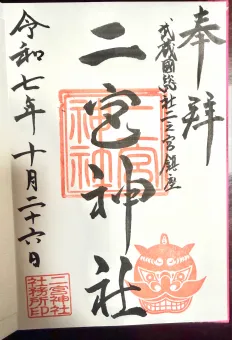 奉拝
武蔵國総社二之宮鎮座
二宮神社
二宮神社
令和七年十月二十六日
二宮神社
社務所印